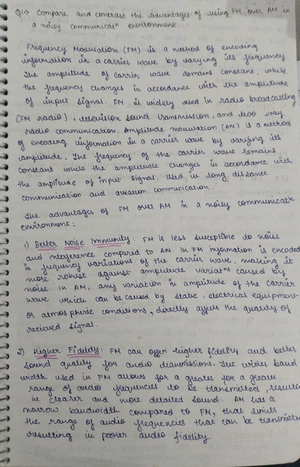 Q11) Compare and contrast the advantages of using FM over AM in
a noisy communicatn environment.
Frequency Modulation (FM) is a method of encoding
information in a carrier wave by varying its frequency
The amplitude of carrier wave remains constant while
the frequency changes in accordance with the amplitude
of input signal. FM is widely used in radio broadcasting
(FM radio), television sound transmission, and two way
radio communication. Amplitude modulation (AM) is a method
of encoding information in a carrier wave by varying its
amplitude. The frequency of the carrier wave remains
constant while the amplitude changes in accordance with
the amplitude of input signal. Used in long distance
communication and aviation communication.
The advantages of FM over AM in a noisy communicatn
environment:
1) Better Noise Immunity: FM is less susceptible to noise
and interference compared to AM. In FM information is encoded
in frequency variations of the carrier wave, making it
more robust against amplitude variatns caused by
noise. In AM, any variation in amplitude of the carrier
wave which can be caused by static electrical equipment
or atmospheric conditions, directly affects the quality of
received signal.
2) Higher Fidelity: FM can offer higher fidelity and better
sound quality for audio transmissions. The wider band
width used in FM allows for a greater for a greater
range of audio frequencies to be transmitted, resulting
in clearer and more detailed sound. AM has a
narrow bandwidth compared to FM, that limits
the range of audio frequencies that can be transmitted
resulting in poorer audio fidelity.